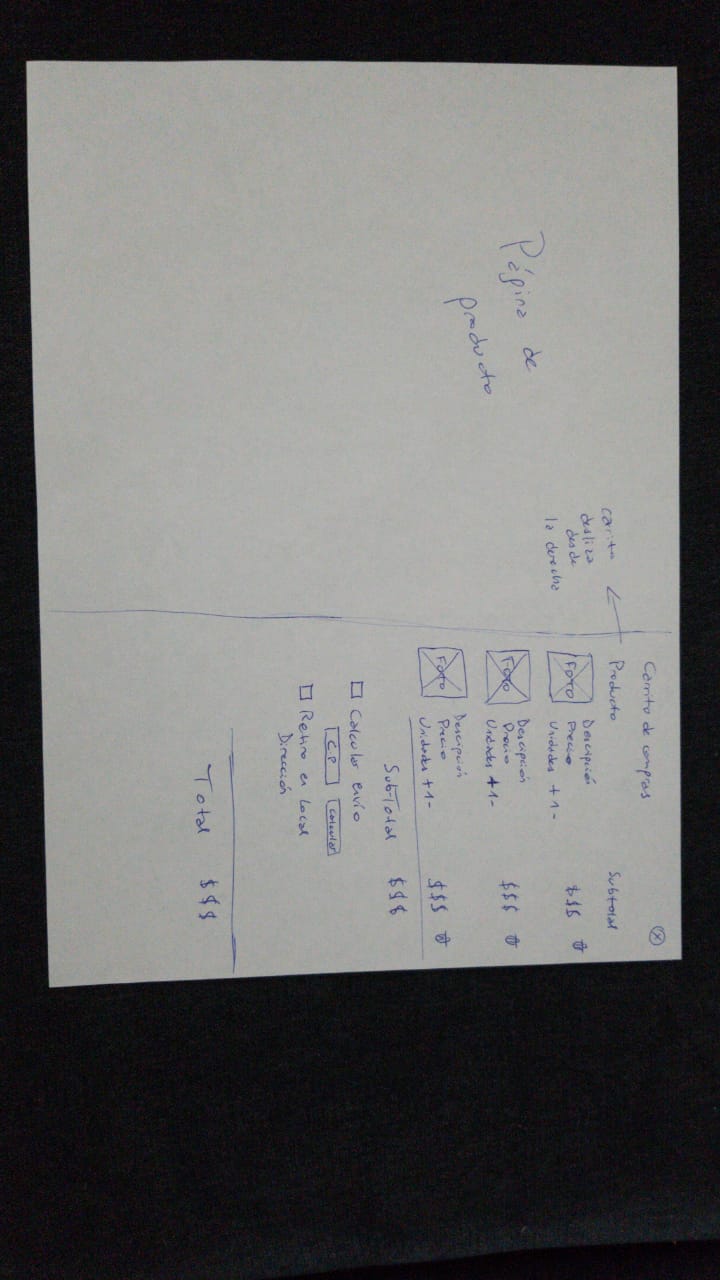 Página de
producto
carrito
desliza
desde
la derecha
Carrito de compras
X
Producto
Subtotal
FOTO
Descripción
Precio
Unidades + 1 -
$$$
FOTO
Descripción
Precio
Unidades + 1 -
$$$
FOTO
Descripción
Precio
Unidades + 1 -
$$$
SubTotal $$$
Calcular envío
C.P
Calcular
Retiro en local
Dirección
Total $$$